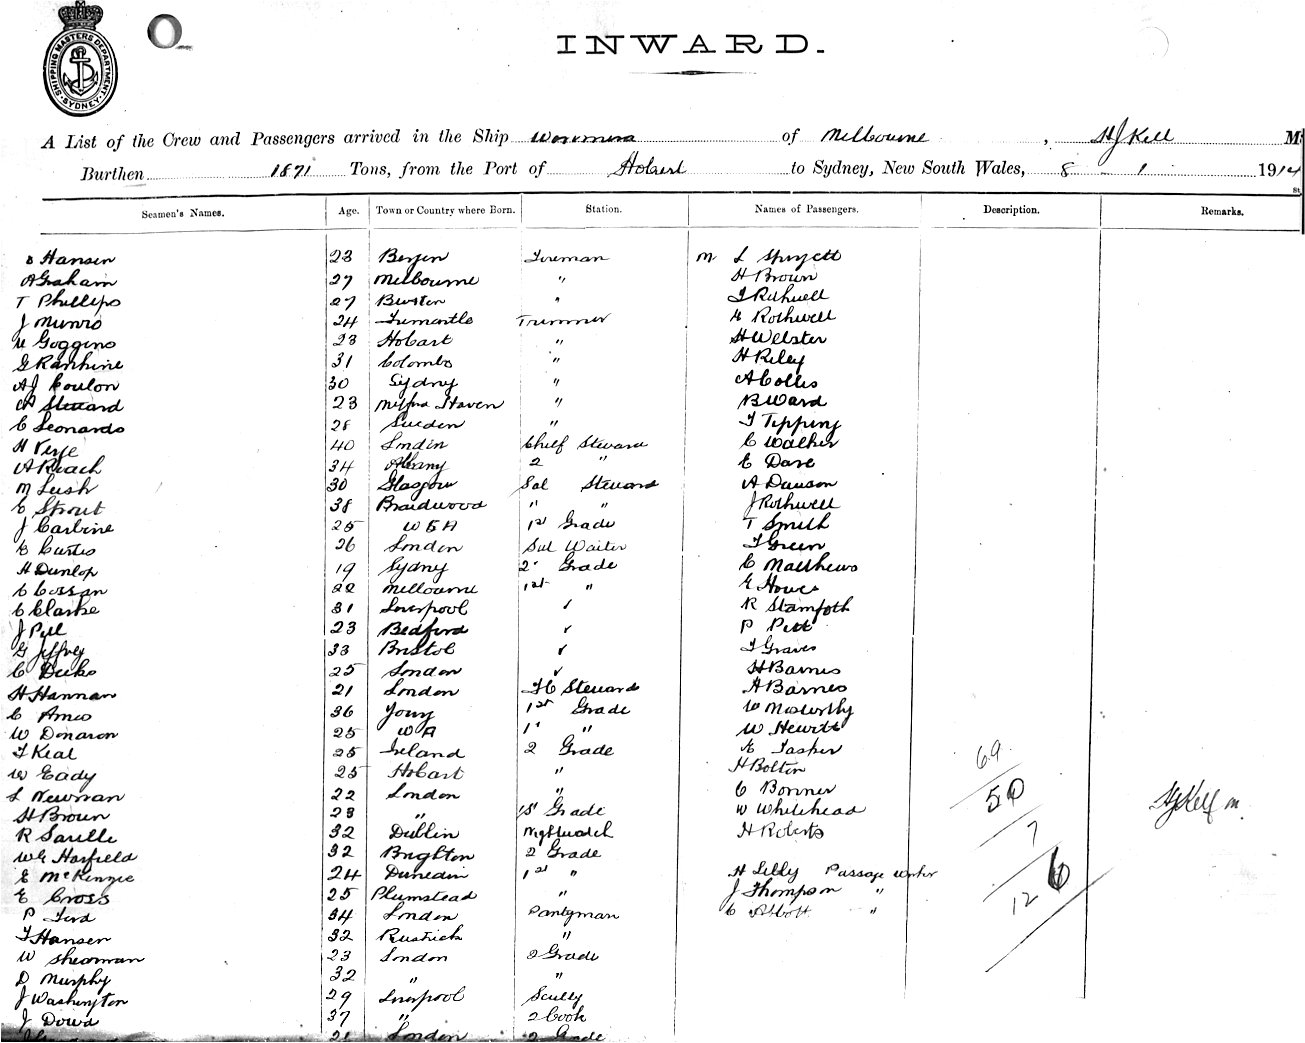 SHIPPING MASTERS DEPARTMENT
SYDNEY
INWARD.
A List of the Crew and Passengers arrived in the Ship of Melbourne, HJ Kell M
Burthen 1871 Tons, from the Port of Hobart to Sydney, New South Wales, 8 1 1914
St
Seamen's Names. Age. Town or Country where Born. Station. Names of Passengers. Description. Remarks.
Hansen 23 Bergen Fireman M L
A Graham 27 Melbourne " H Brown
T Phillips 27 "
J Munro 24 Fremantle Trimmer Rothwell
Goggins 23 Hobart " H Webster
G Rankine 31 Colombo " H Riley
A J Coulon 30 Sydney " A Collis
Steward 23 Milford Haven " B Ward
C Leonardo 28 Sweden " Tipping
H 40 London Chief Steward C Walker
A Roach 34 Albany 2 " E Dare
M Lush 30 Glasgow Sal Steward A Dawson
E Sprout 38 Braidwood " " J Rothwell
J Carbine 25 1st Grade T Smith
Curtis 26 London Sal Waiter Green
H Dunlop 19 Sydney 2 Grade C Matthews
C Cossan 22 Melbourne 1st " E Howes
C Clarke 31 Liverpool R Stamforth
J Pell 23 Bedford P Pitt
G Jeffrey 33 Bristol Graves
C Deeks 25 London H Barnes
H Hannan 21 London Steward A Barnes
C Ames 36 1st Grade
W Donaron 25 WA 1st " W Hewitt
Keal 25 Ireland 2 Grade E Tasker
W Eady 25 Hobart " H Bolton 69
L Newman 22 London " C Bonner 50
H Brown 23 " 1st Grade W Whitehead HJ Kell M
R Saville 32 Dublin Nightwatch H Roberts 7
Harfield 32 Brighton 2 Grade
E McKenzie 24 Dunedin 1st " H Lilly Passage worker 126
E Cross 25 Plumstead " J Thompson "
P Ford 34 London Pantryman C Abbott "
Hansen 32 "
W Shearman 23 London 2 Grade
D Murphy 32 " "
J Washington 29 Liverpool Scully
J Dowd 37 " 2 Cook
London 2 Grade